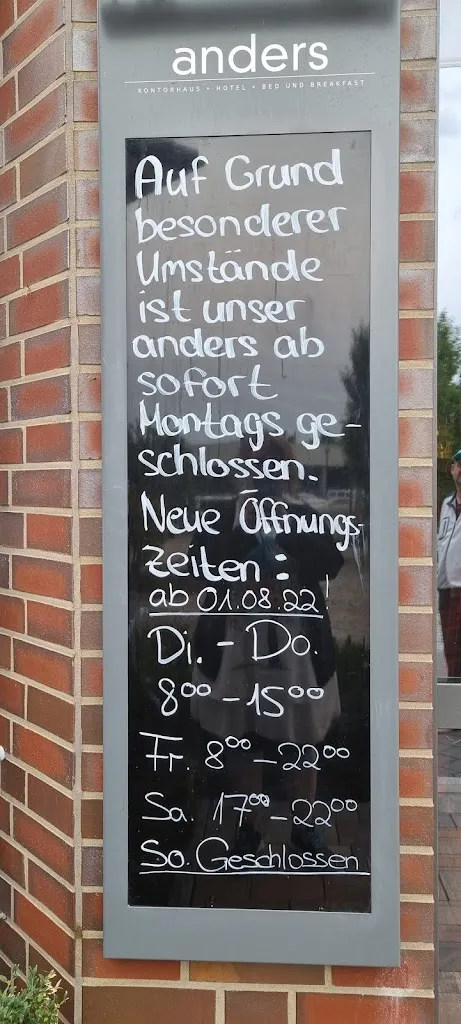 anders
KONTORHAUS • HOTEL • BED UND BREAKFAST
Auf Grund
besonderer
Umstände
ist unser
anders ab
sofort
Montags ge-
schlossen.
Neue Öffnungs-
zeiten:
ab 01.08.22!
Di. - Do.
8⁰⁰ - 15⁰⁰
Fr. 8⁰⁰ - 22⁰⁰
Sa. 17⁰⁰ - 22⁰⁰
So. Geschlossen